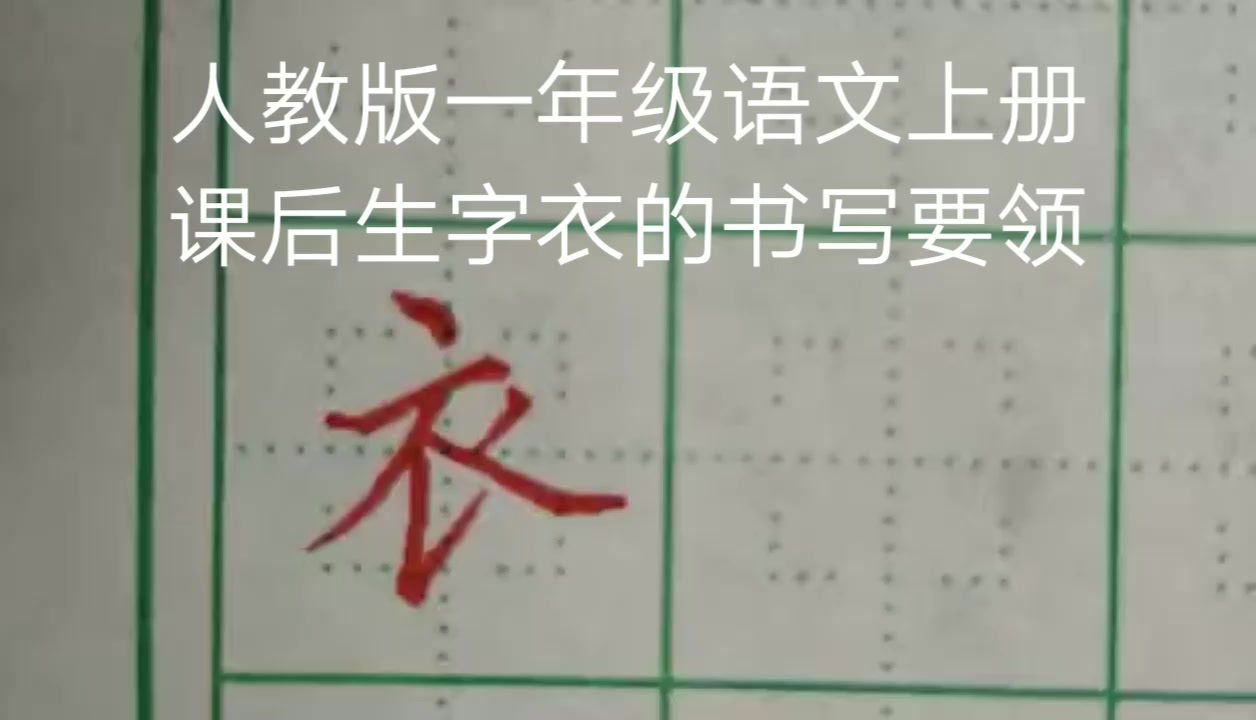 人教版一年级语文上册
课后生字衣的书写要领
衣